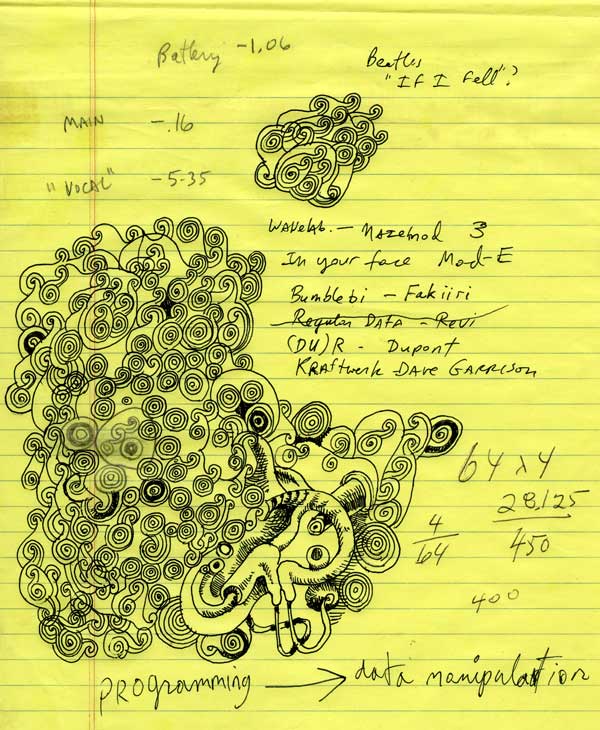 Battery -1.06
Beatles
"If I Fell"?
MAIN -.16
"VOCAL" -5-35
WAVELAB. — MAZEMOD 3
In your face Mod-E
Bumblebi — Fakiiri
Regular DATA - Revi
(DU)R - Dupont
KRAftwerk DAVE GARRISON
64 x 4
28.125
450
4
64
400
PROgramming → data manipulation